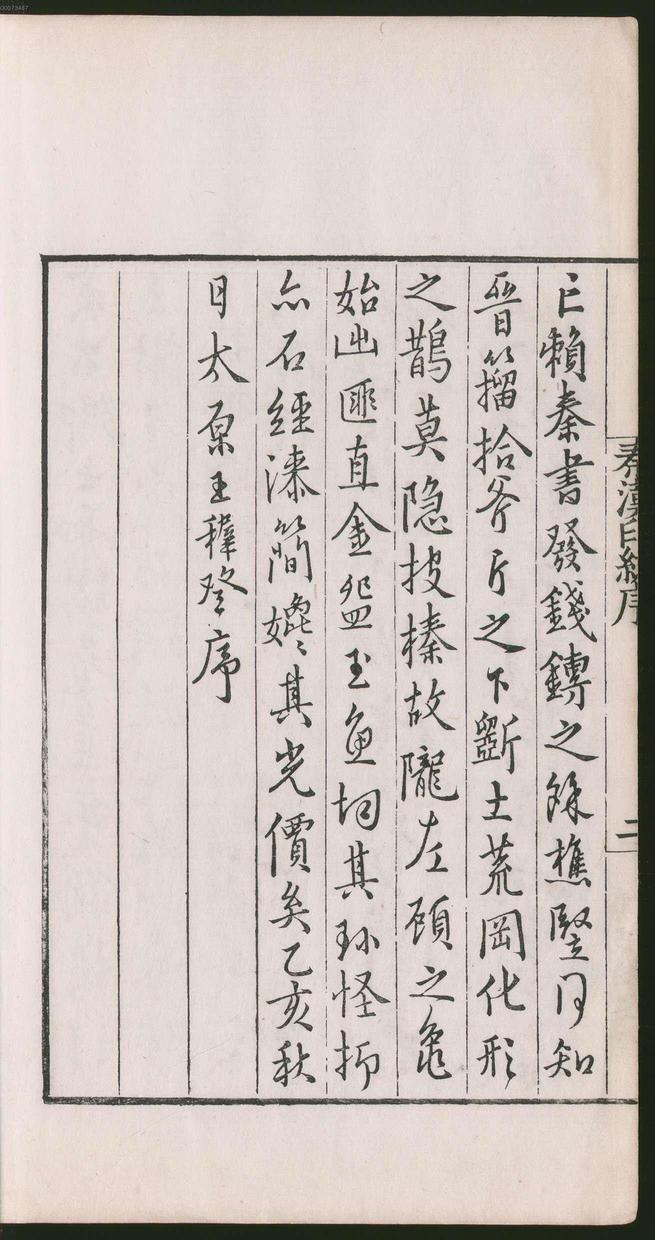 30073487
秦漢印統序
二
亡賴秦書發錢鎛之餘樵豎同知
晉籀拾斧斤之下斲土荒岡化形
之鵲莫隱披榛故隴左顧之龜
始出匪直金盌玉魚均其珍怪抑
亦石經漆簡媲其光價矣乙亥秋
日太原王穉登序